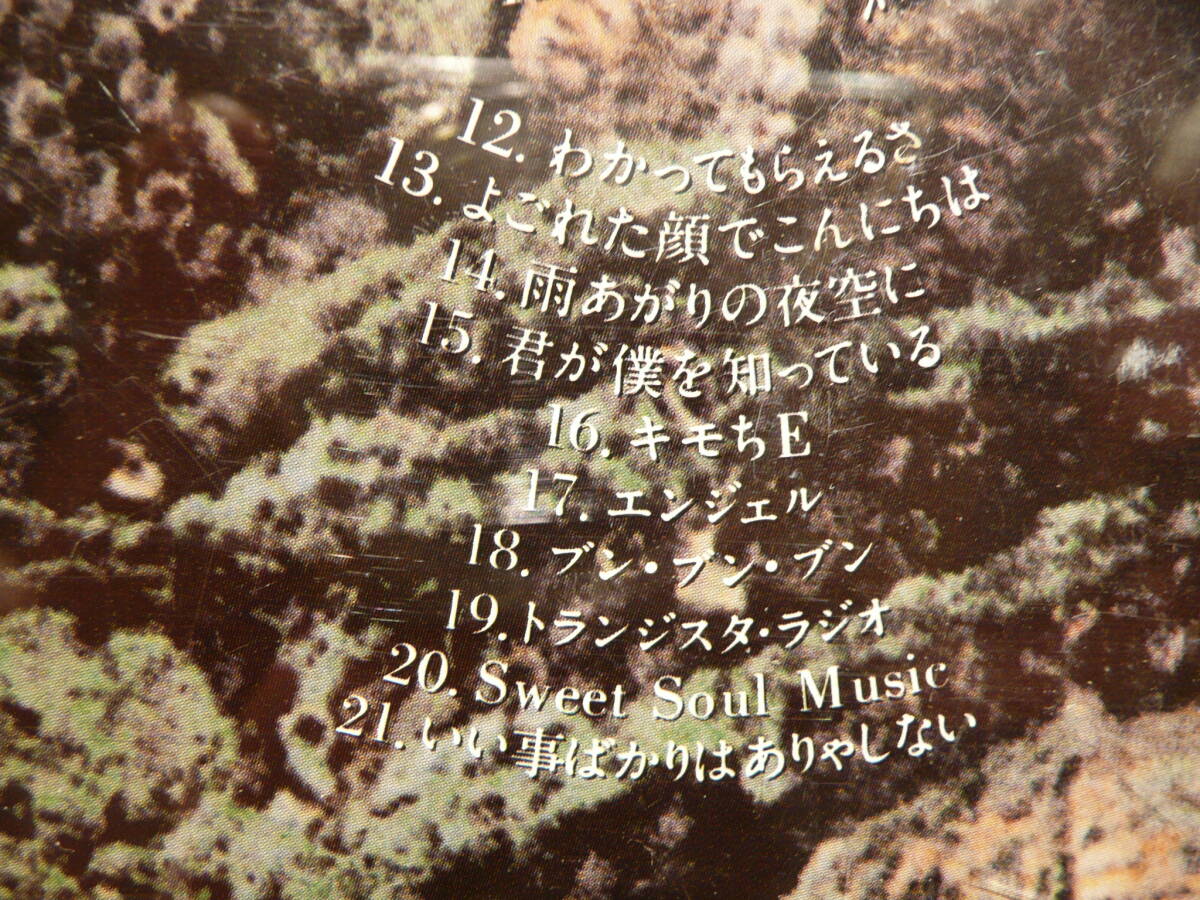 12. わかってもらえるさ
13. よごれた顔でこんにちは
14. 雨あがりの夜空に
15. 君が僕を知っている
16. キモちE
17. エンジェル
18. ブン・ブン・ブン
19. トランジスタ・ラジオ
20. Sweet Soul Music
21. いい事ばかりはありゃしない